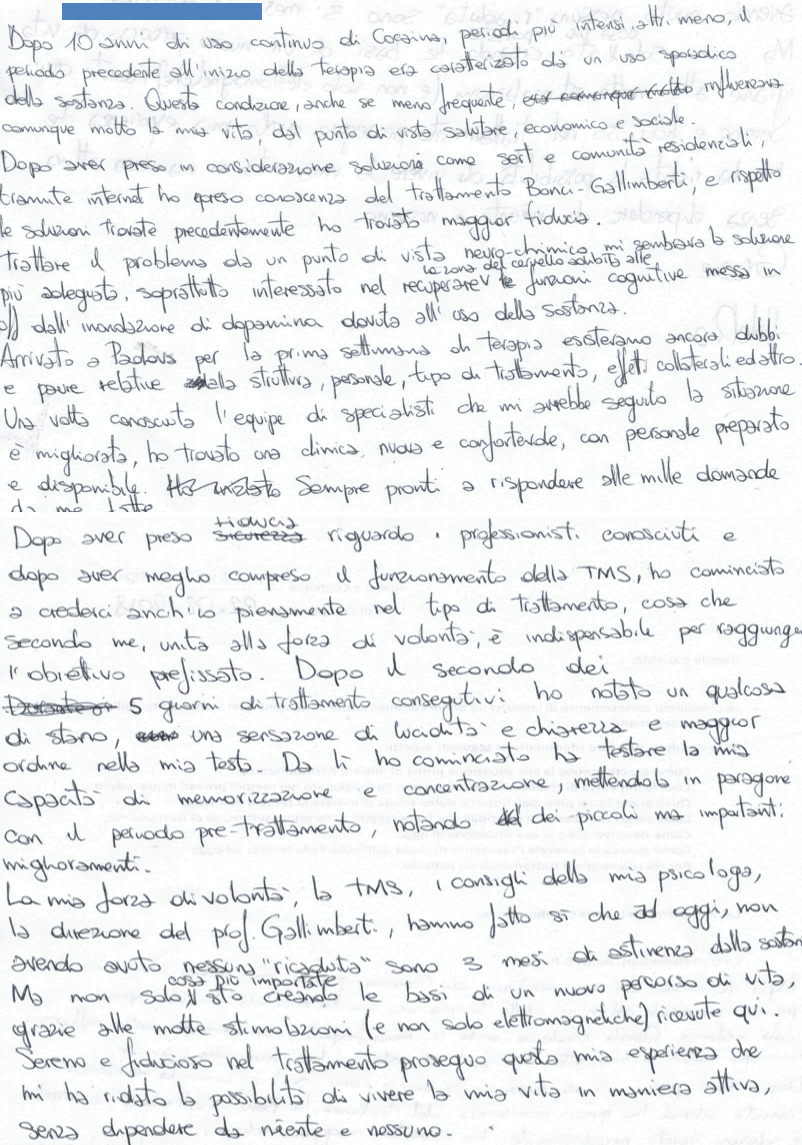 Dopo 10 anni di uso continuo di Cocaina, periodi più intensi, altri meno, il
periodo precedente all'inizio della terapia era caratterizato da un uso sporadico
della sostanza. Questa condizione, anche se meno frequente, influenzava
comunque molto la mia vita, dal punto di vista salutare, economico e sociale.
Dopo aver preso in considerazione soluzioni come sert e comunità residenziali,
tramite internet ho preso conoscenza del trattamento Bonci-Gallimberti, e rispetto
le soluzioni trovate precedentemente ho trovato maggior fiducia.
Trattare il problema da un punto di vista neuro-chimico, mi sembrava la soluzione
più adeguata, soprattutto interessato nel recuperare la zona del cervello adibita alle funzioni cognitive messa in
off dall'inondazione di dopamina dovuta all'uso della sostanza.
Arrivato a Padova per la prima settimana di terapia esistevano ancora dubbi
e paure relative alla struttura, personale, tipo di trattamento, effetti collaterali ed altro.
Una volta conosciuta l'equipe di specialisti che mi avrebbe seguito la situazione
è migliorata, ho trovato una clinica nuova e confortevole, con personale preparato
e disponibile. Sempre pronti a rispondere alle mille domande
da me fatte
Dopo aver preso fiducia riguardo i professionisti conosciuti e
dopo aver meglio compreso il funzionamento della TMS, ho cominciato
a crederci anch'io pienamente nel tipo di trattamento, cosa che
secondo me, unita alla forza di volontà, è indispensabile per raggiunge
l'obiettivo prefissato. Dopo il secondo dei
5 giorni di trattamento consegutivi ho notato un qualcosa
di strano, una sensazione di lucidità e chiarezza e maggior
ordine nella mia testa. Da lì ho cominciato ha testare la mia
capacità di memorizzazione e concentrazione mettendola in paragone
con il periodo pre-trattamento, notando dei piccoli ma importanti
miglioramenti.
La mia forza di volontà, la TMS, i consigli della mia psicologa,
la direzione del prof. Gallimberti, hanno fatto si che ad oggi, non
avendo avuto nessuna "ricaduta" sono 3 mesi di astinenza dalla sostan
Ma non solo, cosa più importate sto creando le basi di un nuovo percorso di vita,
grazie alle molte stimolazioni (e non solo elettromagnetiche) ricevute qui.
Sereno e fiducioso nel trattamento proseguo questa mia esperienza che
mi ha ridato la possibilità di vivere la mia vita in maniera attiva,
senza dipendere da niente e nessuno.